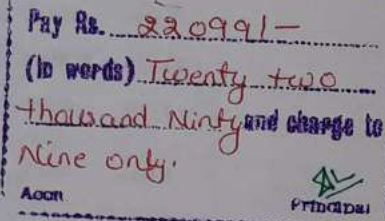 Pay Rs. 22099/-
(in words) Twenty two
thousand Ninty and charge to
Nine only.
Acon
Principal